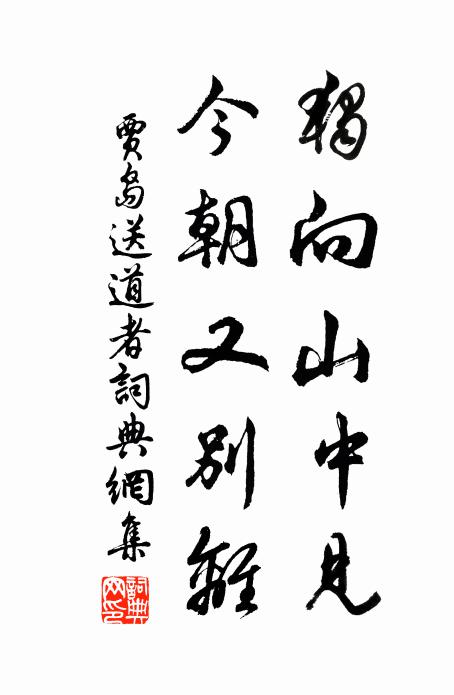 獨向山中見
今朝又別離
賈島送道者詞典網集
詞典网印